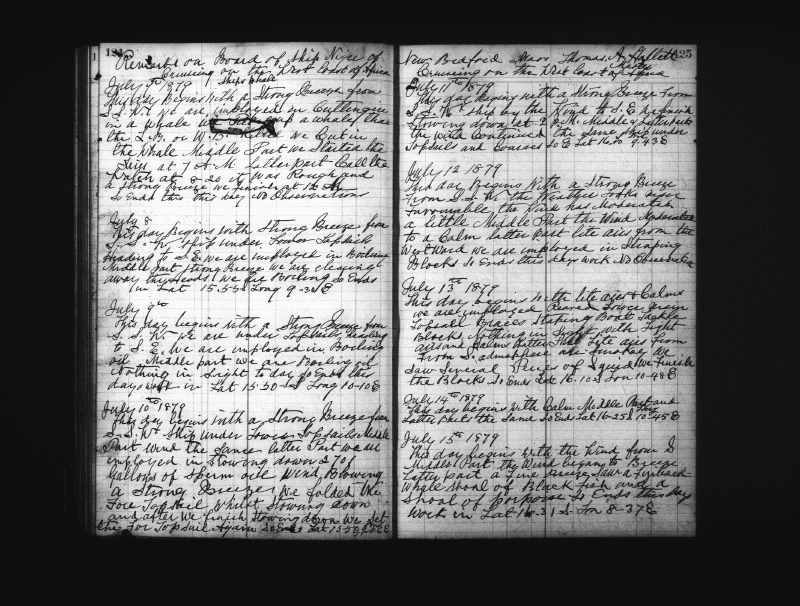 124
Remarks on Board of Ship Niger of
Cruising on the West Coast of Africa
July 7th 1879
This day Begins with a Strong Breeze from
S.S.W. we are employed in Cutting in
in a whale
the L.B. or W.B. we Cut in
the Whale Middle Part we Started the
at 7 A.M. latter part Call the
Watch at it was Rough and
a Strong Breeze we finish at 12
So Ends this this day No Observations
July 8
This day begins with Strong Breeze from
S.S.W. Ship under Topsails
heading to S.E. we are employed in Boiling
Middle part Strong Breeze we are clearing
away the Heads we are Boiling So Ends
in Lat 15-55 S Long 9-38 E
July 9th
This day begins with a Strong Breeze from
S.S.W. we are under Topsails heading
to S.E. We are employed in Boiling
oil Middle part we are Boiling oil
Nothing in Sight to day So Ends this
days work in Lat 15-50 S Long 10-10 E
July 10th 1879
This day begins with a Strong Breeze from
S.S.W. Ship under Lower Topsails Middle
Part Wind the Same latter Part we are
employed in Stowing down 270
Gallons of Sperm oil Wind Blowing
a Strong Breeze We folded the
Fore Topsail Whilst Stowing down
and after We finish Stowing down We Set
the Fore Topsail Again So Ends Lat 15-58
125
New Bedford Mass Thomas A. Hallett
Cruising on the West Coast of Africa
July 11th 1879
This day begins with a Strong Breeze From
S.S.W. Ship by the Wind to S.E. we finish
Stowing down at 2 P.M. Middle & Latter Parts
the Wind Continued the Same Ship under
Topsails and Courses So Ends Lat 16.00 9.43 E
July 12 1879
This day Begins With a Strong Breeze
From S.S.W. the Weather looks more
Favourable the Wind has moderated
a little Middle Part the Wind Moderated
to a Calm latter part lite airs from the
West Ward we are employed in Scraping
Blocks So Ends this days work No Observation
July 13th 1879
This day begins With lite airs & Calms
we are employed
Topsail Braces Boat Tackle
Blocks Nothing in Sight With Light
airs and Calms latter Part lite airs from
From S. admosphere we
Saw Several Pieces of Squid We finish
the Blocks So Ends Lat 16-10 S Lon 10-48 E
July 14th 1879
This day begins With Calm Middle Part and
Latter Parts the Same So Ends Lat 16-25 S 10-45 E
July 15th 1879
This day begins With the Wind from S
Middle Part the Wind began to Breeze
Latter Part a fine Breeze Saw a finback
Whale Shoal of Black fish and a
Shoal of porpoise So Ends this days
Work in Lat 16-31 S Lon 8-37 E